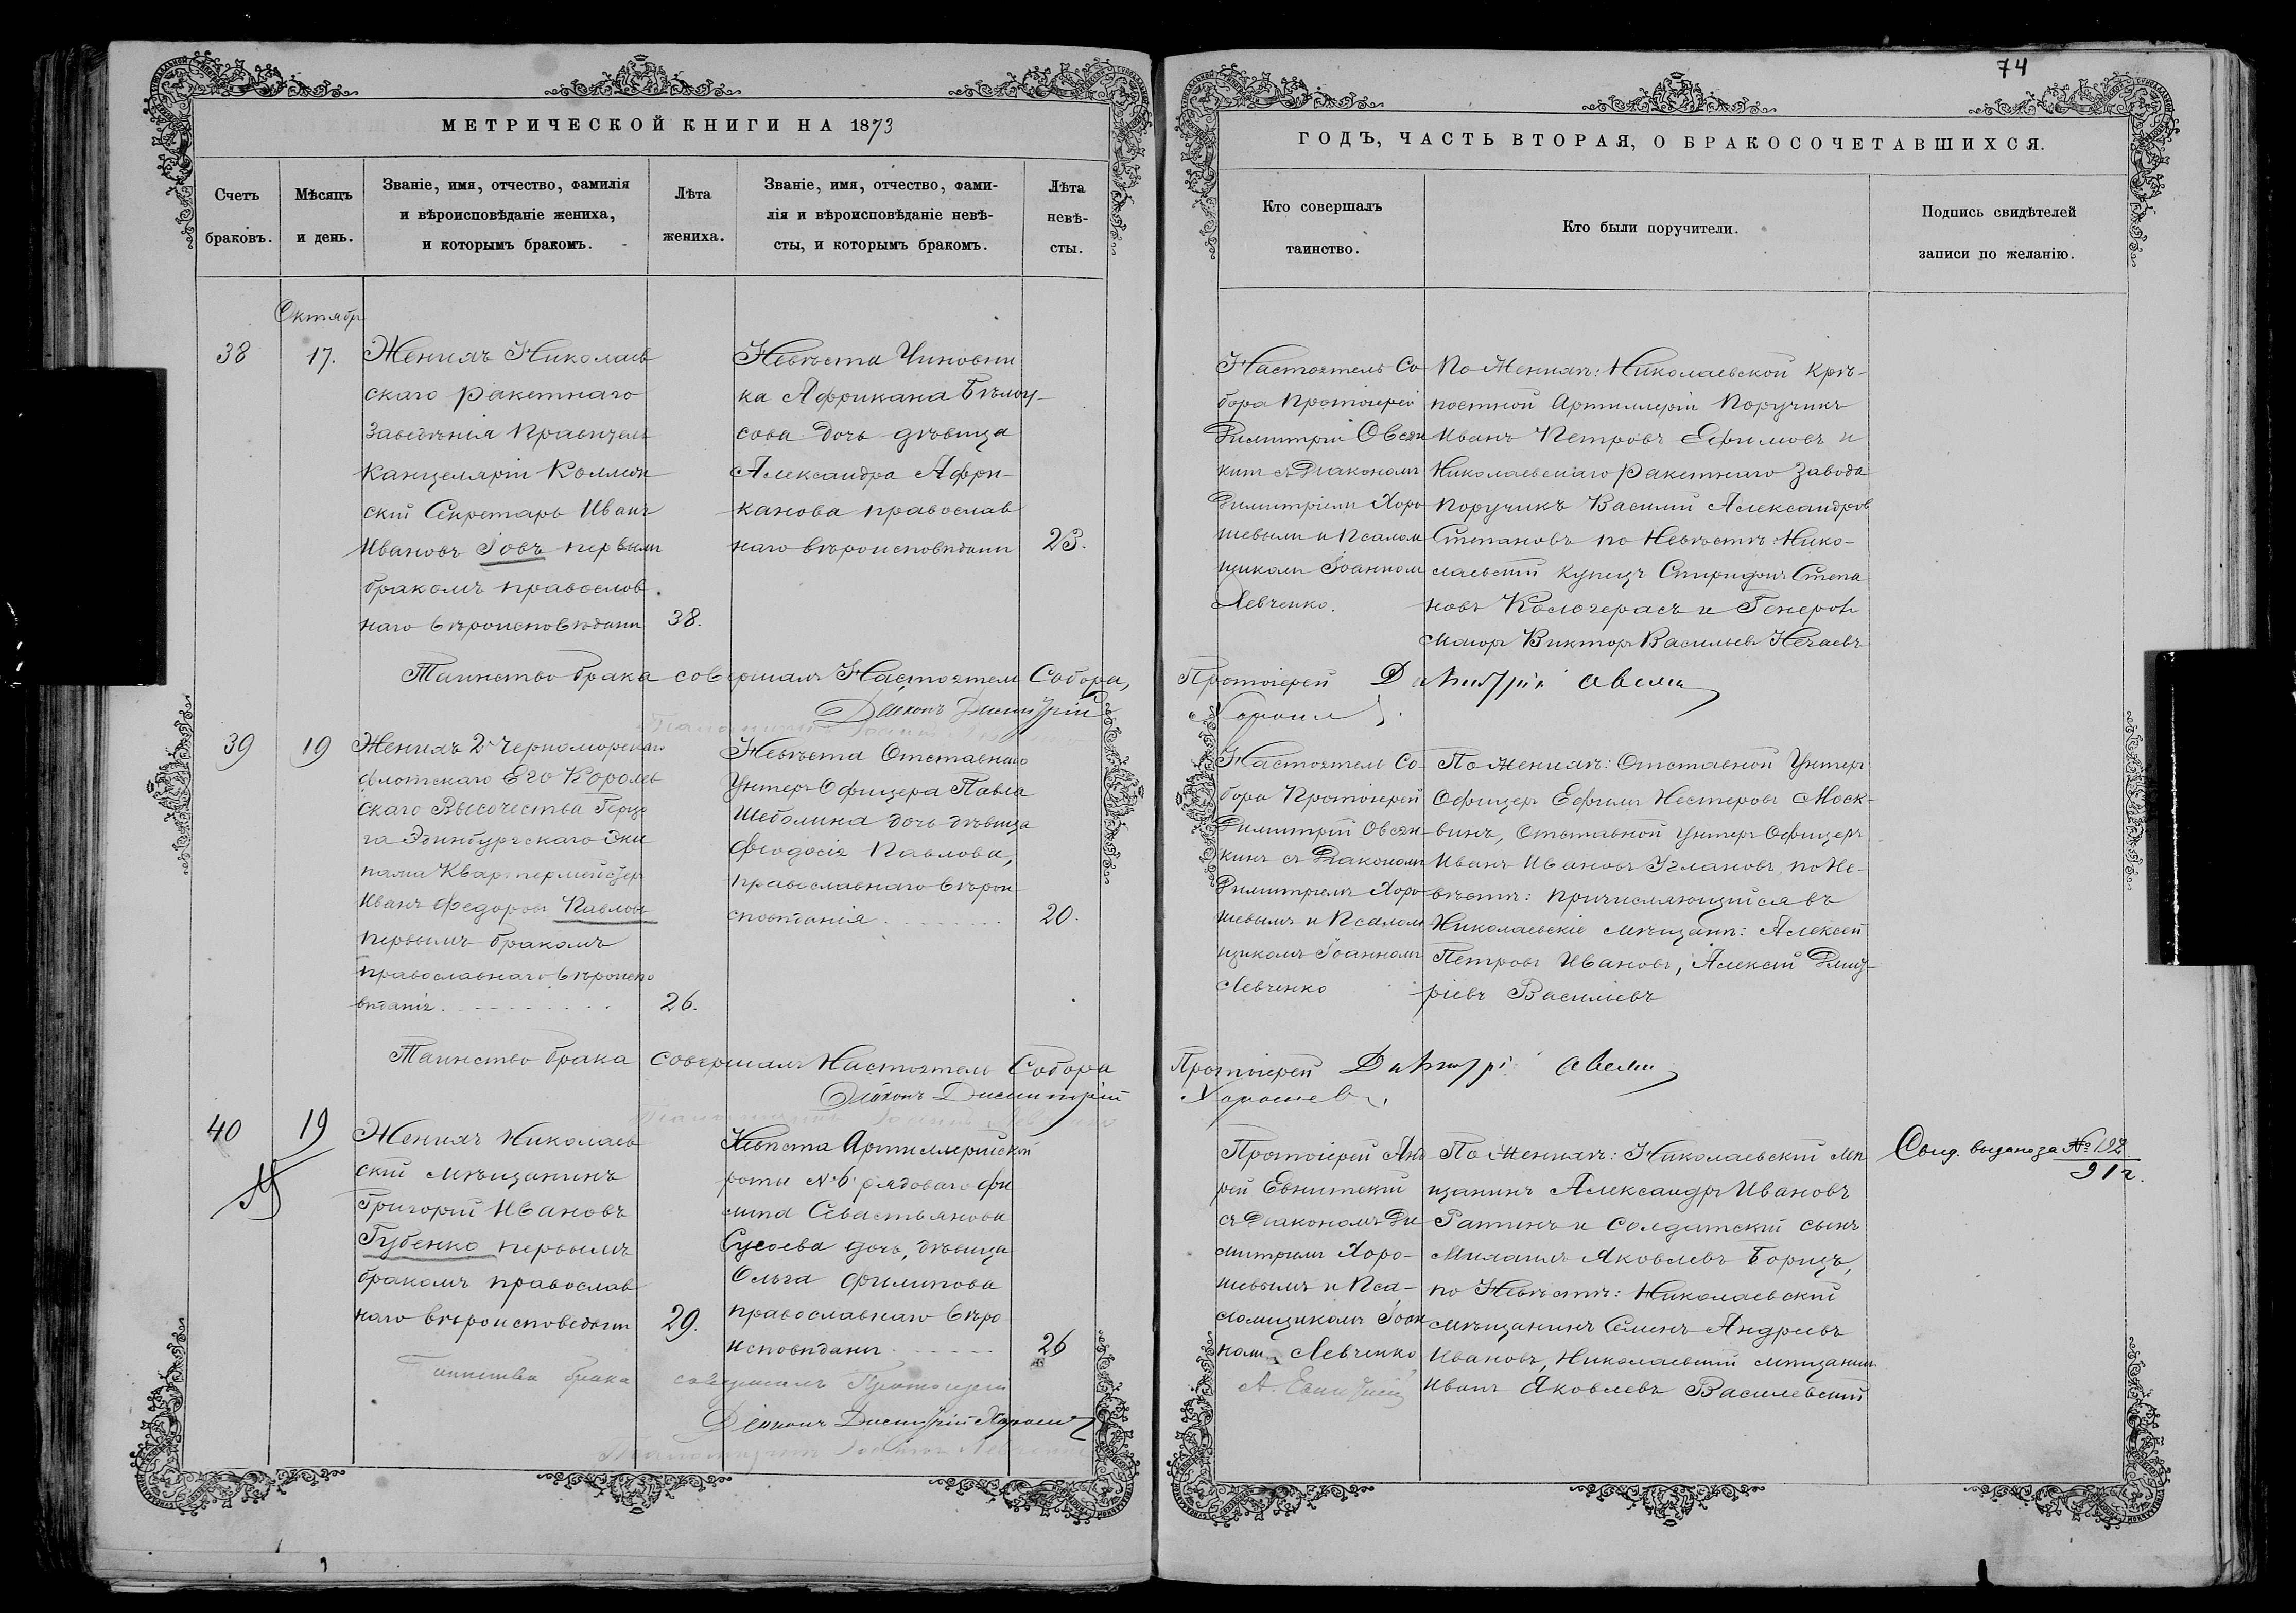 74
МЕТРИЧЕСКОЙ КНИГИ НА 1873
ГОДЪ, ЧАСТЬ ВТОРАЯ, О БРАКОСОЧЕТАВШИХСЯ.
Счетъ
браковъ.
Мѣсяцъ
и день.
Званіе, имя, отчество, фамилія
и вѣроисповѣданіе жениха,
и которымъ бракомъ.
Лѣта
жениха.
Званіе, имя, отчество, фами-
лія и вѣроисповѣданіе невѣ-
сты, и которымъ бракомъ.
Лѣта
невѣ-
сты.
Кто совершалъ
таинство.
Кто были поручители.
Подпись свидѣтелей
записи по желанію.
Октябр
38
17.
Женихъ Николаев
скаго ракетнаго
Заведенія Правитель
Канцеляріи Коллеж
скій Секретарь Иванъ
Ивановъ Іовъ первымъ
бракомъ православ
наго вѣроисповѣдани
38.
Невѣста Чиновни
ка Африкана Бѣлоу-
сова дочь дѣвица
Александра Афри-
канова православ
наго вѣроисповѣдани
23.
Настоятель Со-
бора Протоіерей
Димитрій Овсян
кинъ съ Діакономъ
Димитріемъ Хоро
шевымъ и Псалом
щикомъ Іоанном
Левченко.
По Женихѣ: Николаевской крѣ-
постной Артиллеріи Поручикъ
Иванъ Петровъ Ефимовъ и
Николаевскаго ракетнаго Завода
Поручикъ Василій Александров
Степановъ по Невѣстѣ: Нико-
лаевскій купецъ Спиридонъ Степа
новъ Калогерасъ и Генерал
Маіоръ Викторъ Васильевъ Нечаевъ
Таинство брака совершалъ Настоятель Собора,
Протоіерей Димитрій Овсян
Діаконъ Димитрій
Хорошев
39
19
Женихъ 2го Черноморскаго
флотскаго Его Королев
скаго Высочества Герцо
га Эдинбургскаго Эки
пажа Квартермейстер
Иванъ Федоровъ Павловъ
первымъ бракомъ
православнаго вѣроиспо
вѣданія.
26.
Невѣста Отставнаго
Унтеръ Офицера Павла
Шеболина дочь дѣвица
Феодосія Павлова,
православнаго вѣрои
сповѣданія
20.
Настоятель Со-
бора Протоіерей
Димитрій Овсян-
кинъ съ Діакономъ
Димитріемъ Хоро
шевымъ и Псалом
щикомъ Іоанномъ
Левченко
По женихѣ: Отставной Унтеръ
Офицеръ Ефимъ Нестеровъ Моск-
винъ, Отставной унтеръ Офицеръ
Иванъ Ивановъ Углановъ, по Не-
вѣстѣ: причисляющійся въ
Николаевскіе мѣщане: Алексей
Петровъ Ивановъ, Алексей Дмит-
ріевъ Василіевъ
Таинство брака совершалъ Настоятель Собора
Протоіерей Димитрій Овсян
Діаконъ Димитрій
Хорошев
40
19
Женихъ Николаев
скій мѣщанинъ
Григорій Ивановъ
Губенко первымъ
бракомъ православ
наго вѣроисповедани
29.
Невѣста Артиллерійской
роты № 6 рядоваго Фи
липа Севастьянова
Сусоева дочь, дѣвица
Ольга Филипова
православнаго вѣро
исповѣдани
26
Протоіерей Анд
рей Евнитскій
съ Діакономъ Ди
митріемъ Хоро-
шевымъ и Пса-
ломщикомъ Іоан
номъ Левченко
По Женихѣ: Николаевскій мѣ
щанинъ Александръ Ивановъ
Ратинъ и солдатскій сынъ
Михаилъ Яковлевъ Борицъ,
по Невѣстѣ: Николаевскій
мѣщанинъ Семенъ Андреевъ
Ивановъ, Николаевскій мѣщанин
Иванъ Яковлевъ Василевскій
Свид. выдано за № 192
91 г.
Таинство брака совершалъ Протоіерей
А. Евнитскій
Діаконъ Димитрій Хорошев
Псаломщикъ Іоаннъ Левченко